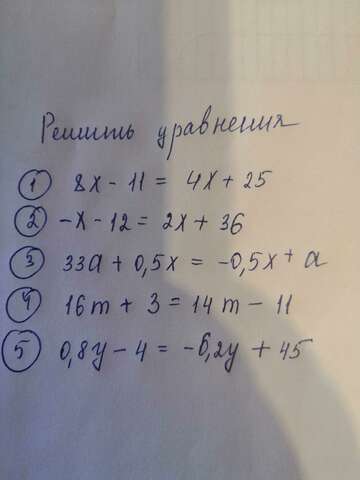 Решить уравнения
① 8x - 11 = 4x + 25
② -x - 12 = 2x + 36
③ 33a + 0,5x = -0,5x + a
④ 16m + 3 = 14m - 11
⑤ 0,8y - 4 = -6,2y + 45